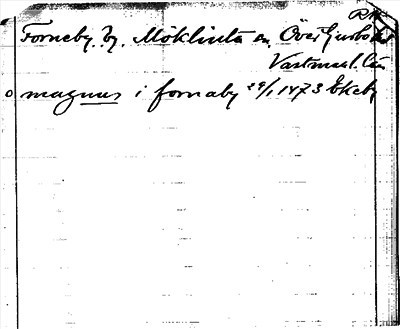 Forneby by. Möklinta sn Över
Västmanl. län
o magnus i fornaby 29/1 1473 Ekeby